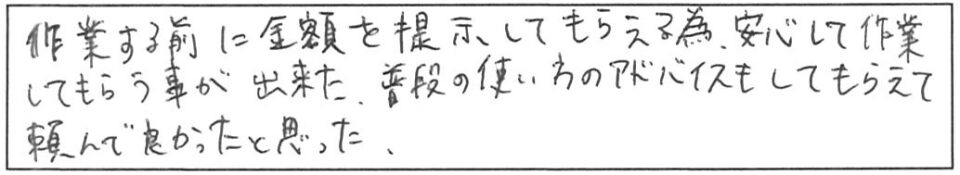 作業する前に金額を提示してもらえる為、安心して作業
してもらう事が出来た、普段の使い方のアドバイスもしてもらえて
頼んで良かったと思った、